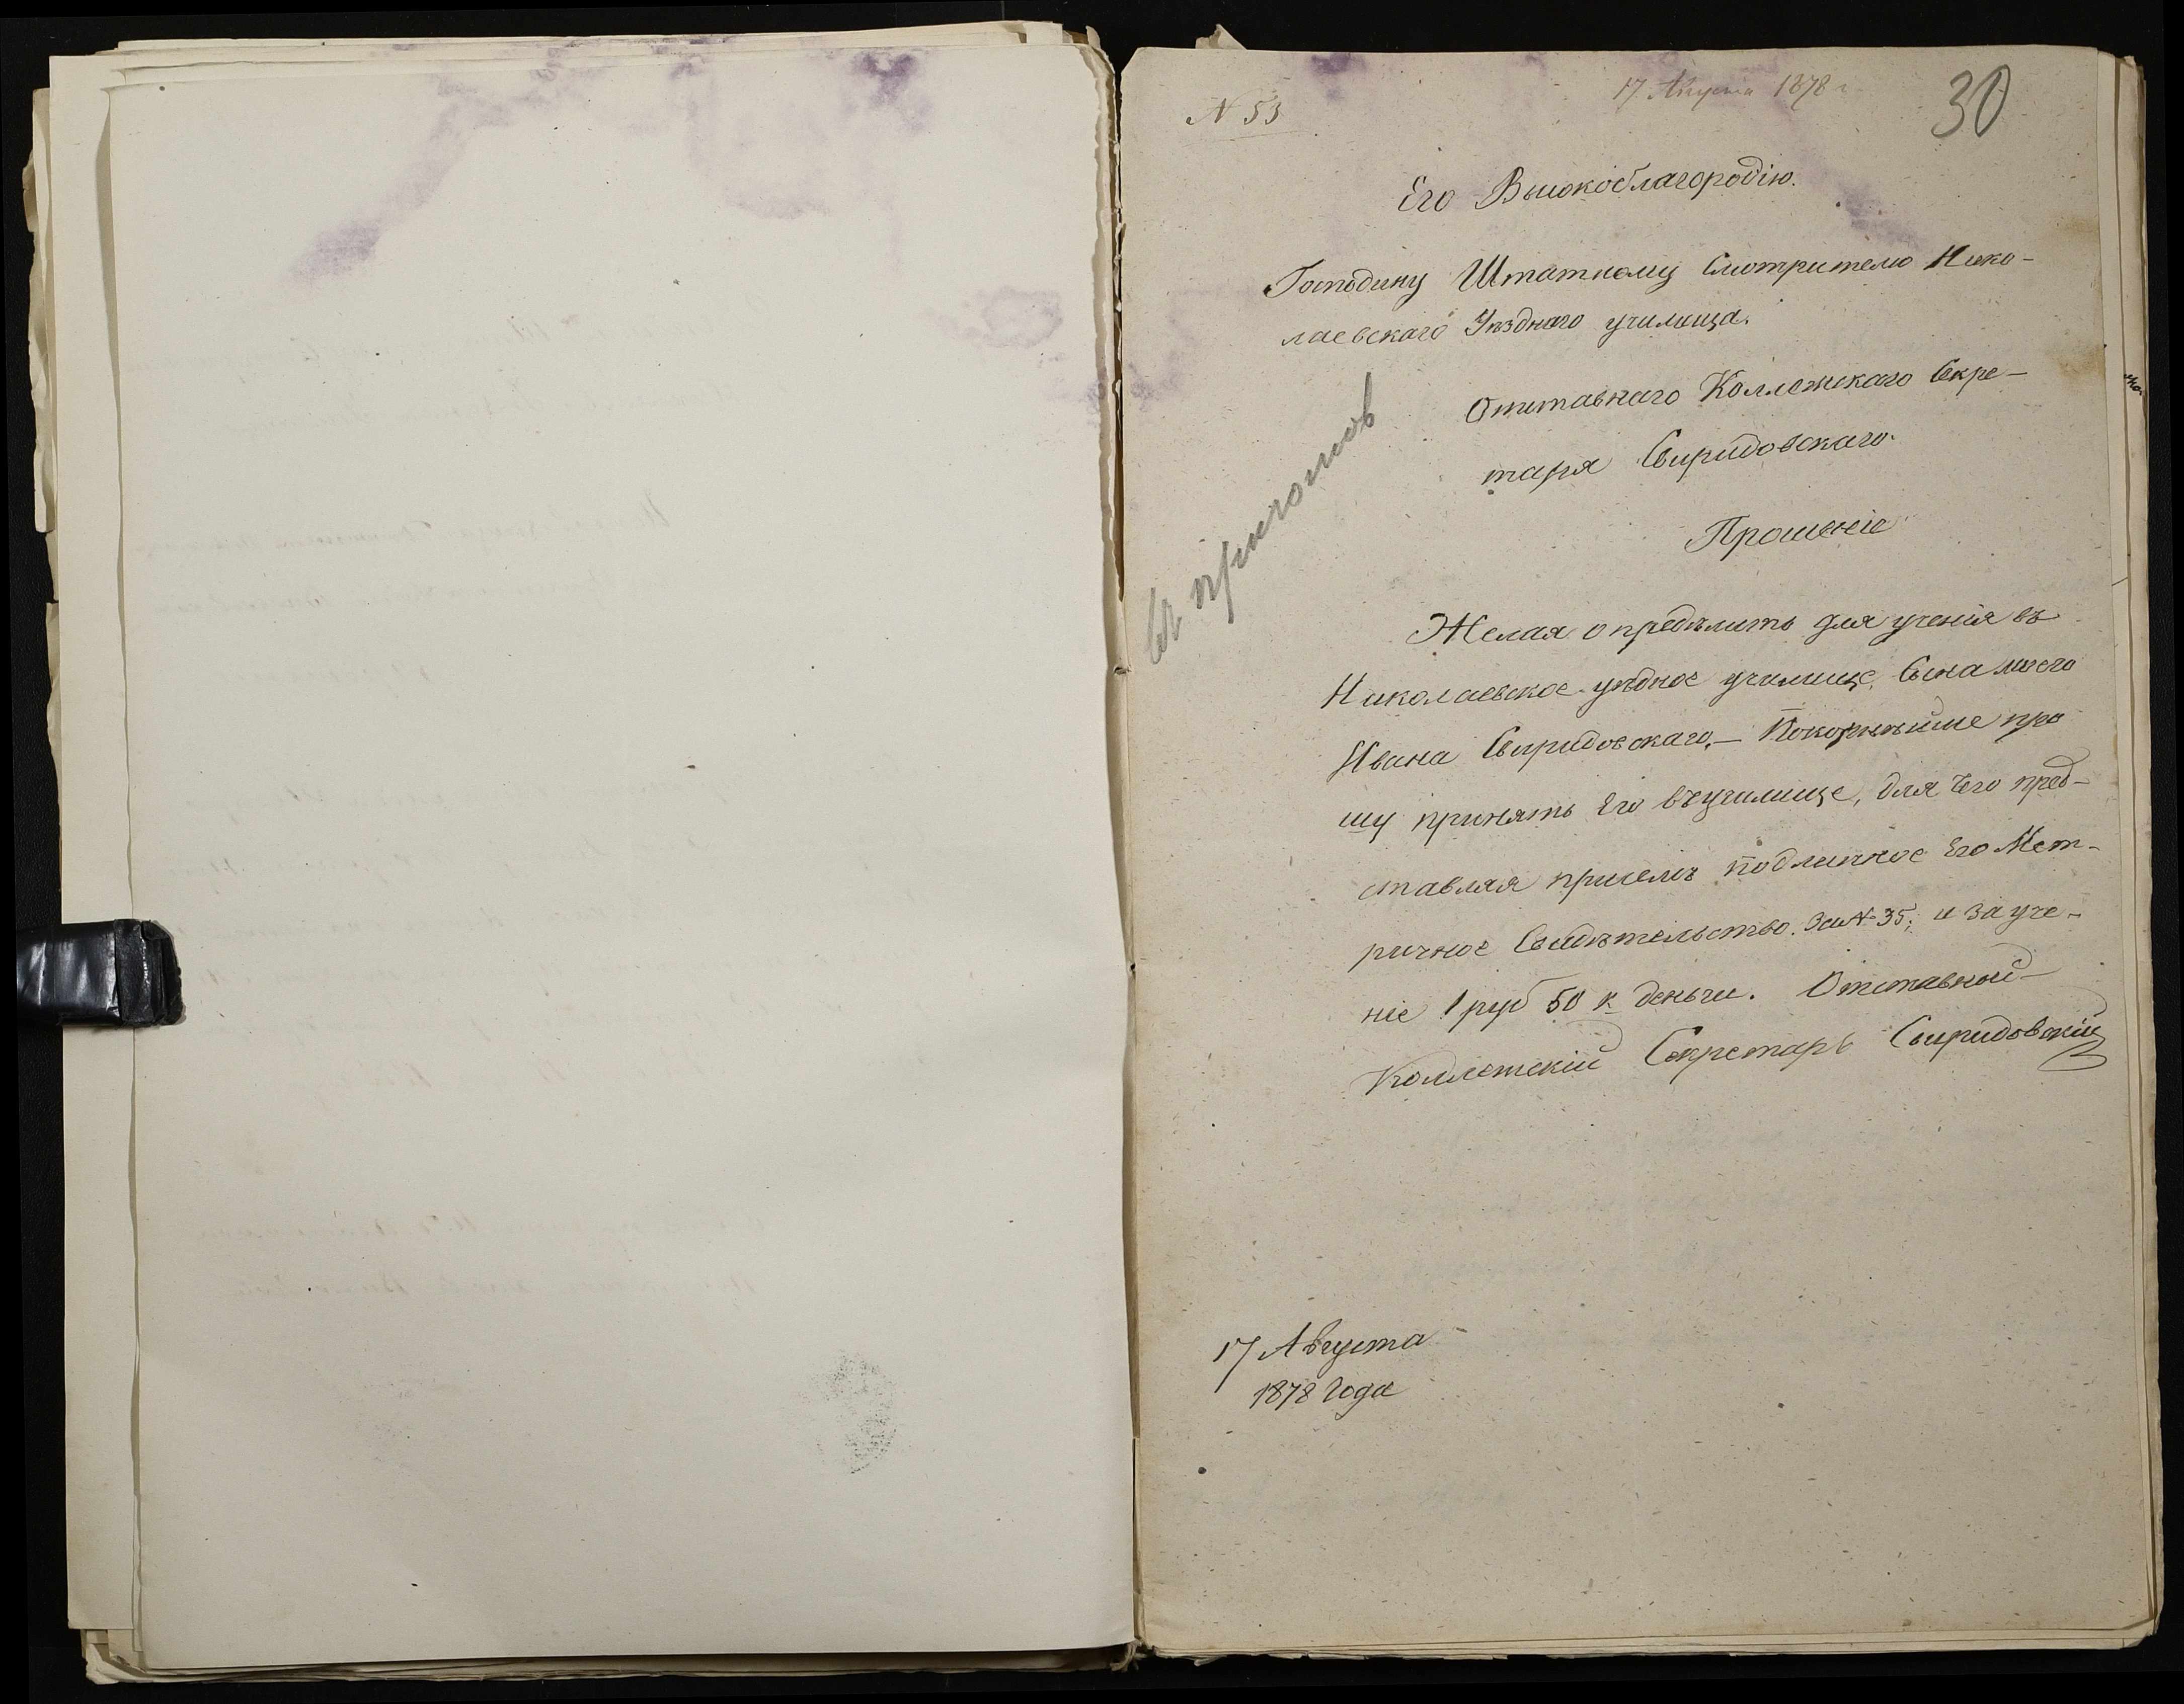 N 53
17 Августа 1878 г
30
Его Высокоблагородію.
Господину Штатному Смотрителю Нико-
лаевскаго Уѣзднаго училища.
Отставнаго Коллежскаго Секре-
таря Свиридовскаго.
Прошеніе
Желая опредѣлить для ученія въ
Николаевское уѣдное училище, Сына моего
Ивана Свиридовскаго,— Покорнѣйше про
шу принять Его въ училище, для чего пред-
ставляя присемъ подлинное Его Мет-
ричное Свидѣтельство. За № 35; и за уче-
ніе 1 руб 50 к деньги. Отставной
Коллежскій Секретарь Свиридовскій
17 Августа
1878 Года